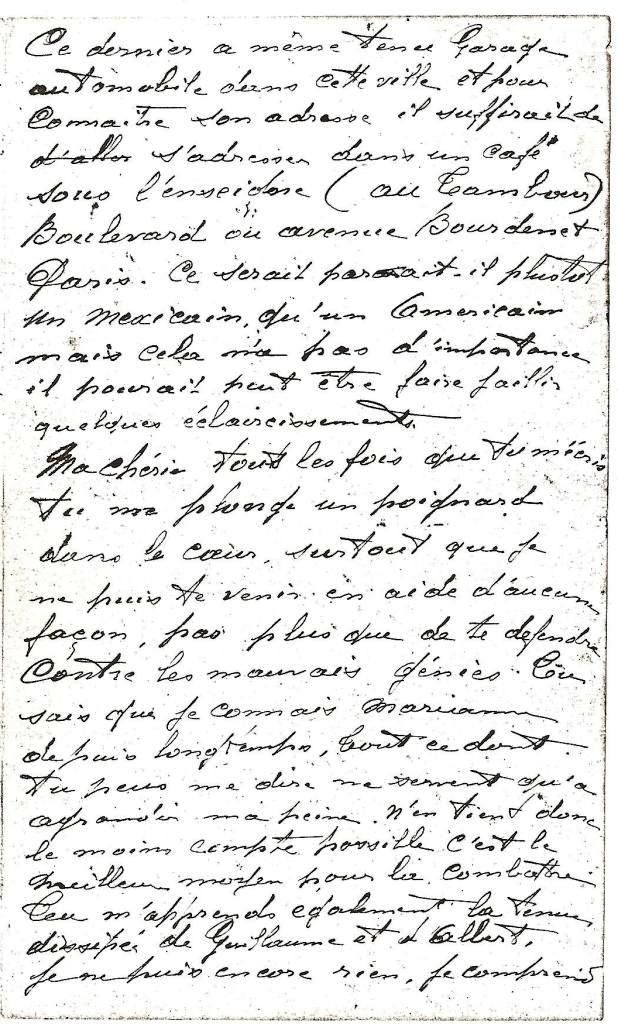 Ce dernier a même tenu Garage
automobile dans cette ville et pour
connaitre son adresse il suffirait de
d'aller s'adresser dans un café
sous l'enseidne (au Tambour)
Boulevard ou avenue Bourdenet
Paris. Ce serait parait-il plustot
un mexicain, qu'un Americain
mais cela n'a pas d'importance
il pourait peut être faire jaillir
quelques éclaircissements.
Ma chérie tout les fois que tu m'écris
tu me plonge un poignard
dans le cœur, surtout que je
ne puis te venir en aide d'aucune
façon, pas plus que de te defendre
contre les mauvais génies. Tu
sais que je connais Marianne
depuis longtemps, tout ce dont
tu peus me dire ne servent qu'a
agrandir ma peine. N'en tient donc
le moins compte possible c'est le
meilleur moyen pour la combattre
Tu m'apprends egalement la tenue
dissipée de Guillaume et d'Albert,
je ne puis encore rien, je comprend